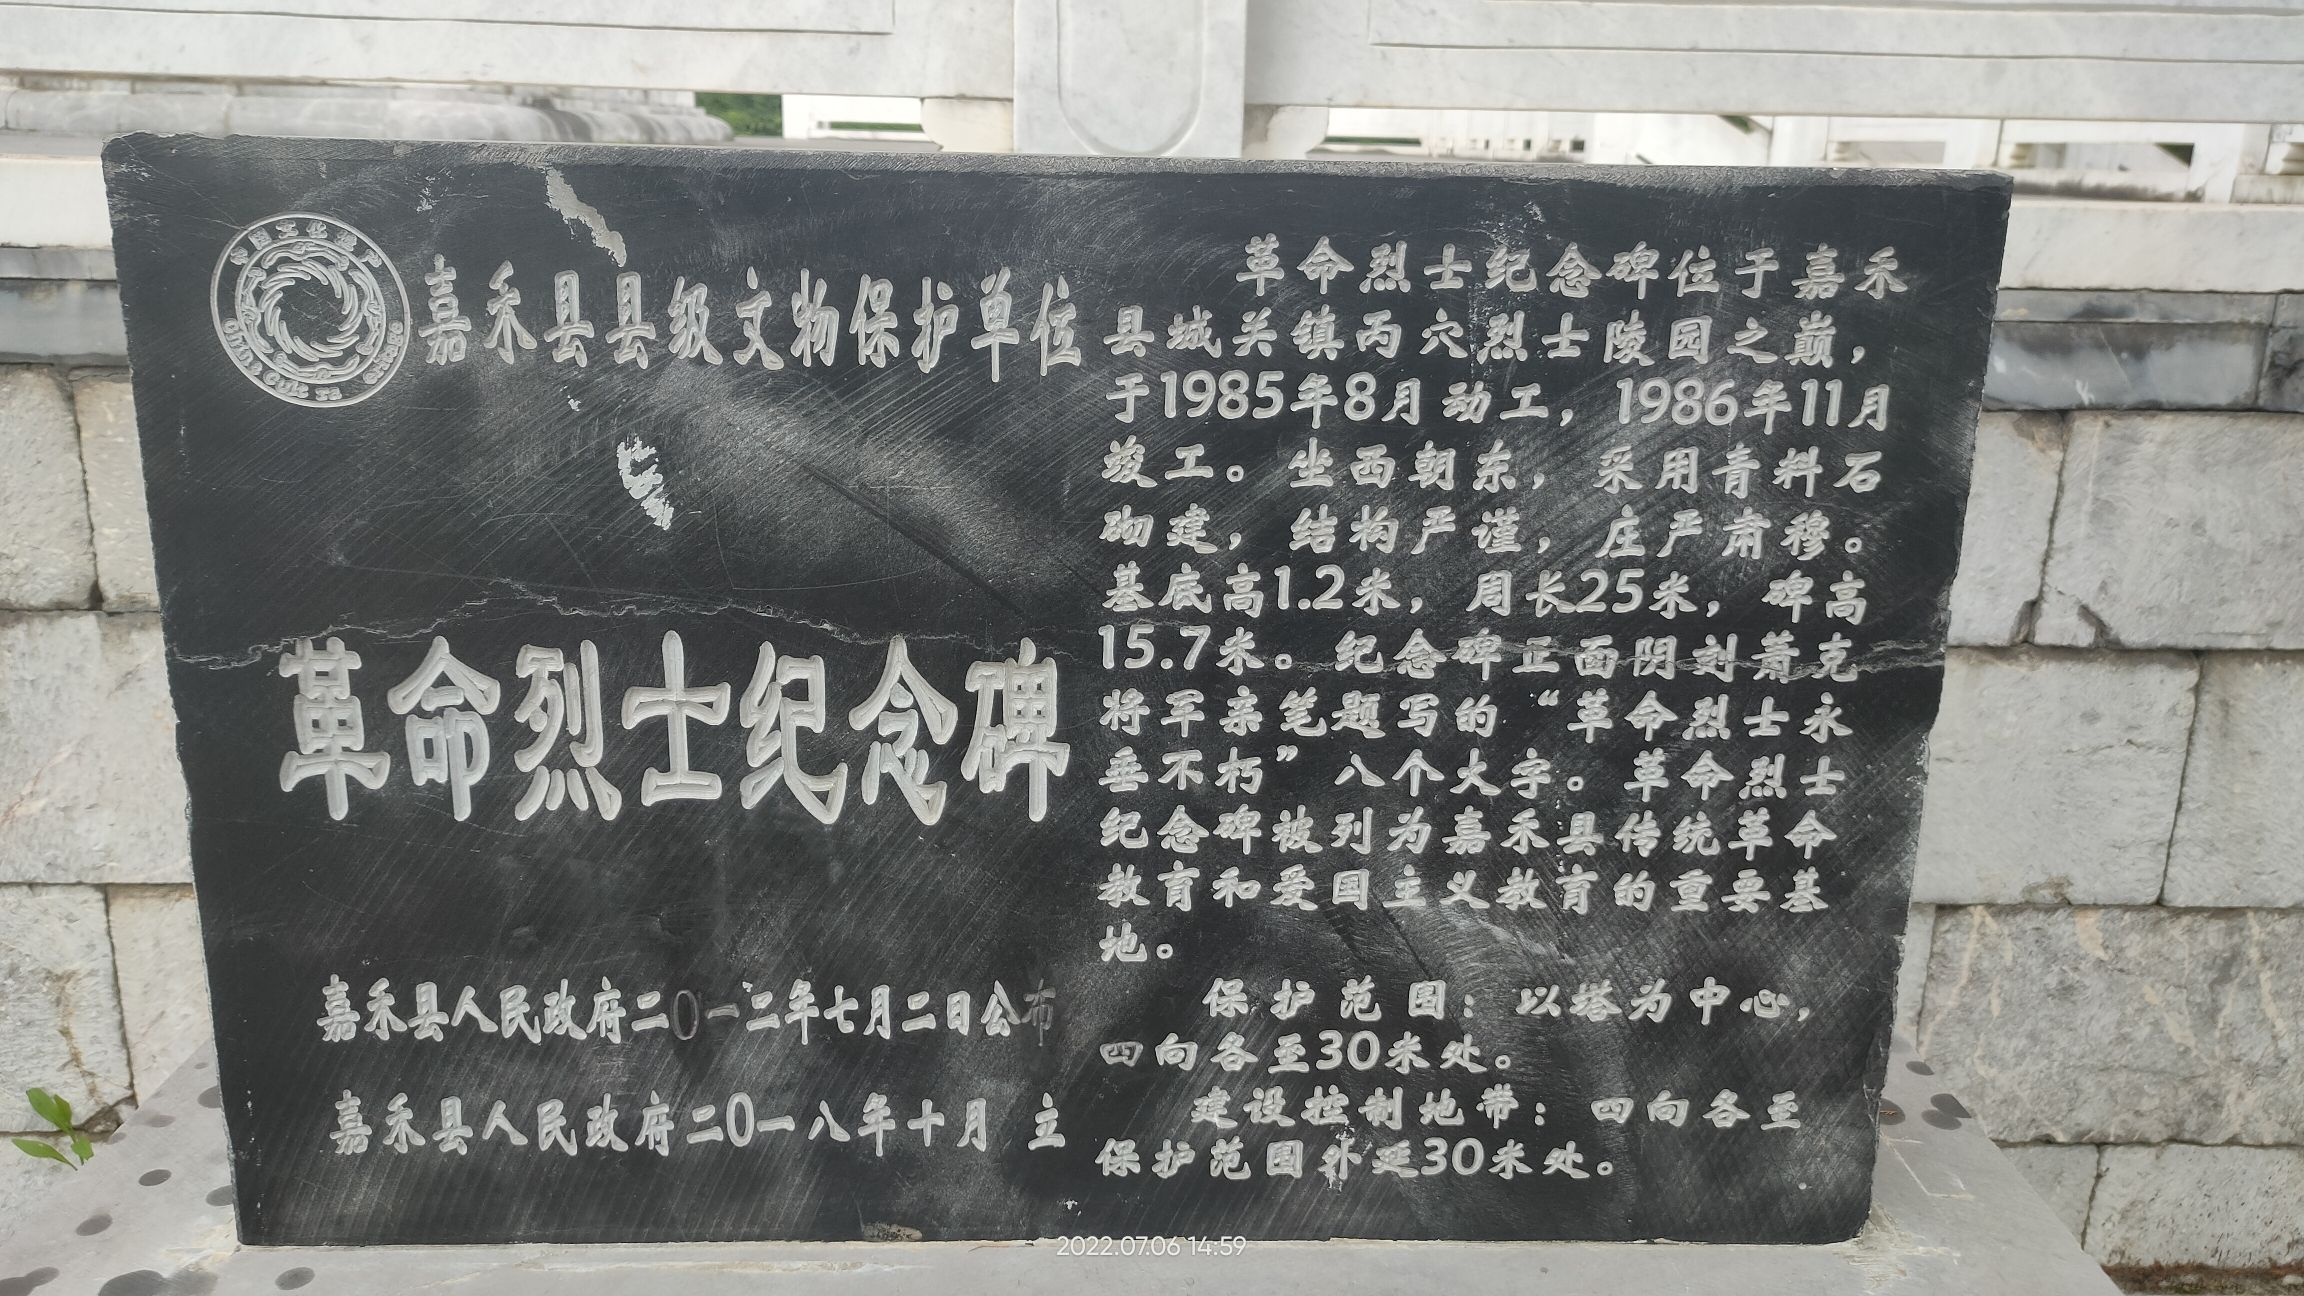 中国文化遗产
嘉禾县县级文物保护单位
革命烈士纪念碑
嘉禾县人民政府二〇一二年七月二日公布
嘉禾县人民政府二〇一八年十月 立
革命烈士纪念碑位于嘉禾
县城关镇丙穴烈士陵园之巅，
于1985年8月动工，1986年11月
竣工。坐西朝东，采用青料石
砌建，结构严谨，庄严肃穆。
基底高1.2米，周长25米，碑高
15.7米。纪念碑正面阴刻萧克
将军亲笔题写的“革命烈士永
垂不朽”八个大字。革命烈士
纪念碑被列为嘉禾县传统革命
教育和爱国主义教育的重要基
地。
保护范围：以塔为中心，
四向各至30米处。
建设控制地带：四向各至
保护范围外延30米处。
2022.07.06 14:59